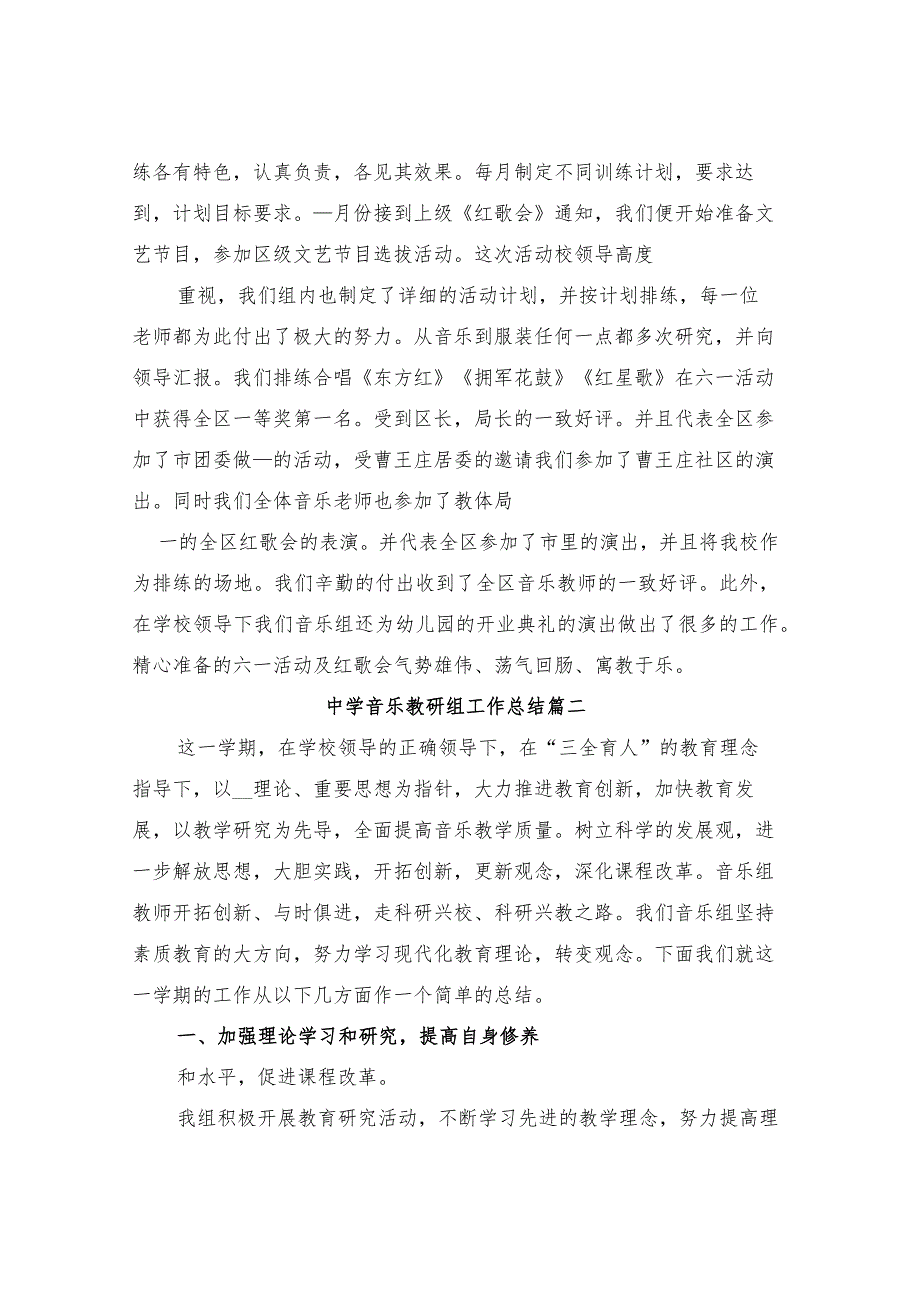 练各有特色，认真负责，各见其效果。每月制定不同训练计划，要求达
到，计划目标要求。—月份接到上级《红歌会》通知，我们便开始准备文
艺节目，参加区级文艺节目选拔活动。这次活动校领导高度
重视，我们组内也制定了详细的活动计划，并按计划排练，每一位
老师都为此付出了极大的努力。从音乐到服装任何一点都多次研究，并向
领导汇报。我们排练合唱《东方红》《拥军花鼓》《红星歌》在六一活动
中获得全区一等奖第一名。受到区长，局长的一致好评。并且代表全区参
加了市团委做—的活动，受曹王庄居委的邀请我们参加了曹王庄社区的演
出。同时我们全体音乐老师也参加了教体局
一的全区红歌会的表演。并代表全区参加了市里的演出，并且将我校作
为排练的场地。我们辛勤的付出收到了全区音乐教师的一致好评。此外，
在学校领导下我们音乐组还为幼儿园的开业典礼的演出做出了很多的工作。
精心准备的六一活动及红歌会气势雄伟、荡气回肠、寓教于乐。
中学音乐教研组工作总结篇二
这一学期，在学校领导的正确领导下，在“三全育人”的教育理念
指导下，以__理论、重要思想为指针，大力推进教育创新，加快教育发
展，以教学研究为先导，全面提高音乐教学质量。树立科学的发展观，进
一步解放思想，大胆实践，开拓创新，更新观念，深化课程改革。音乐组
教师开拓创新、与时俱进，走科研兴校、科研兴教之路。我们音乐组坚持
素质教育的大方向，努力学习现代化教育理论，转变观念。下面我们就这
一学期的工作从以下几方面作一个简单的总结。
一、加强理论学习和研究，提高自身修养
和水平，促进课程改革。
我组积极开展教育研究活动，不断学习先进的教学理念，努力提高理